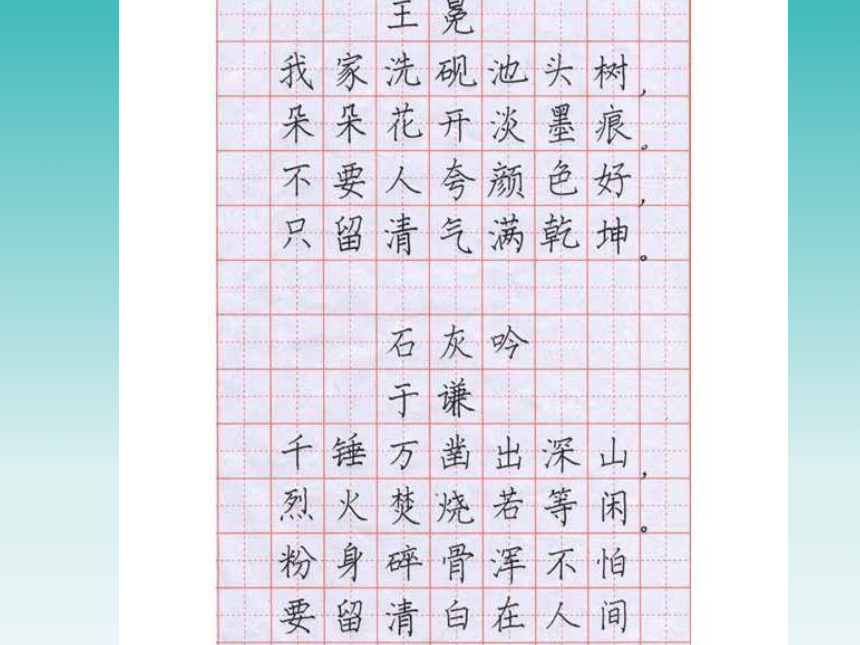 王冕
我家洗砚池头树，
朵朵花开淡墨痕。
不要人夸颜色好，
只留清气满乾坤。
石灰吟
于谦
千锤万凿出深山，
烈火焚烧若等闲。
粉身碎骨浑不怕
要留清白在人间